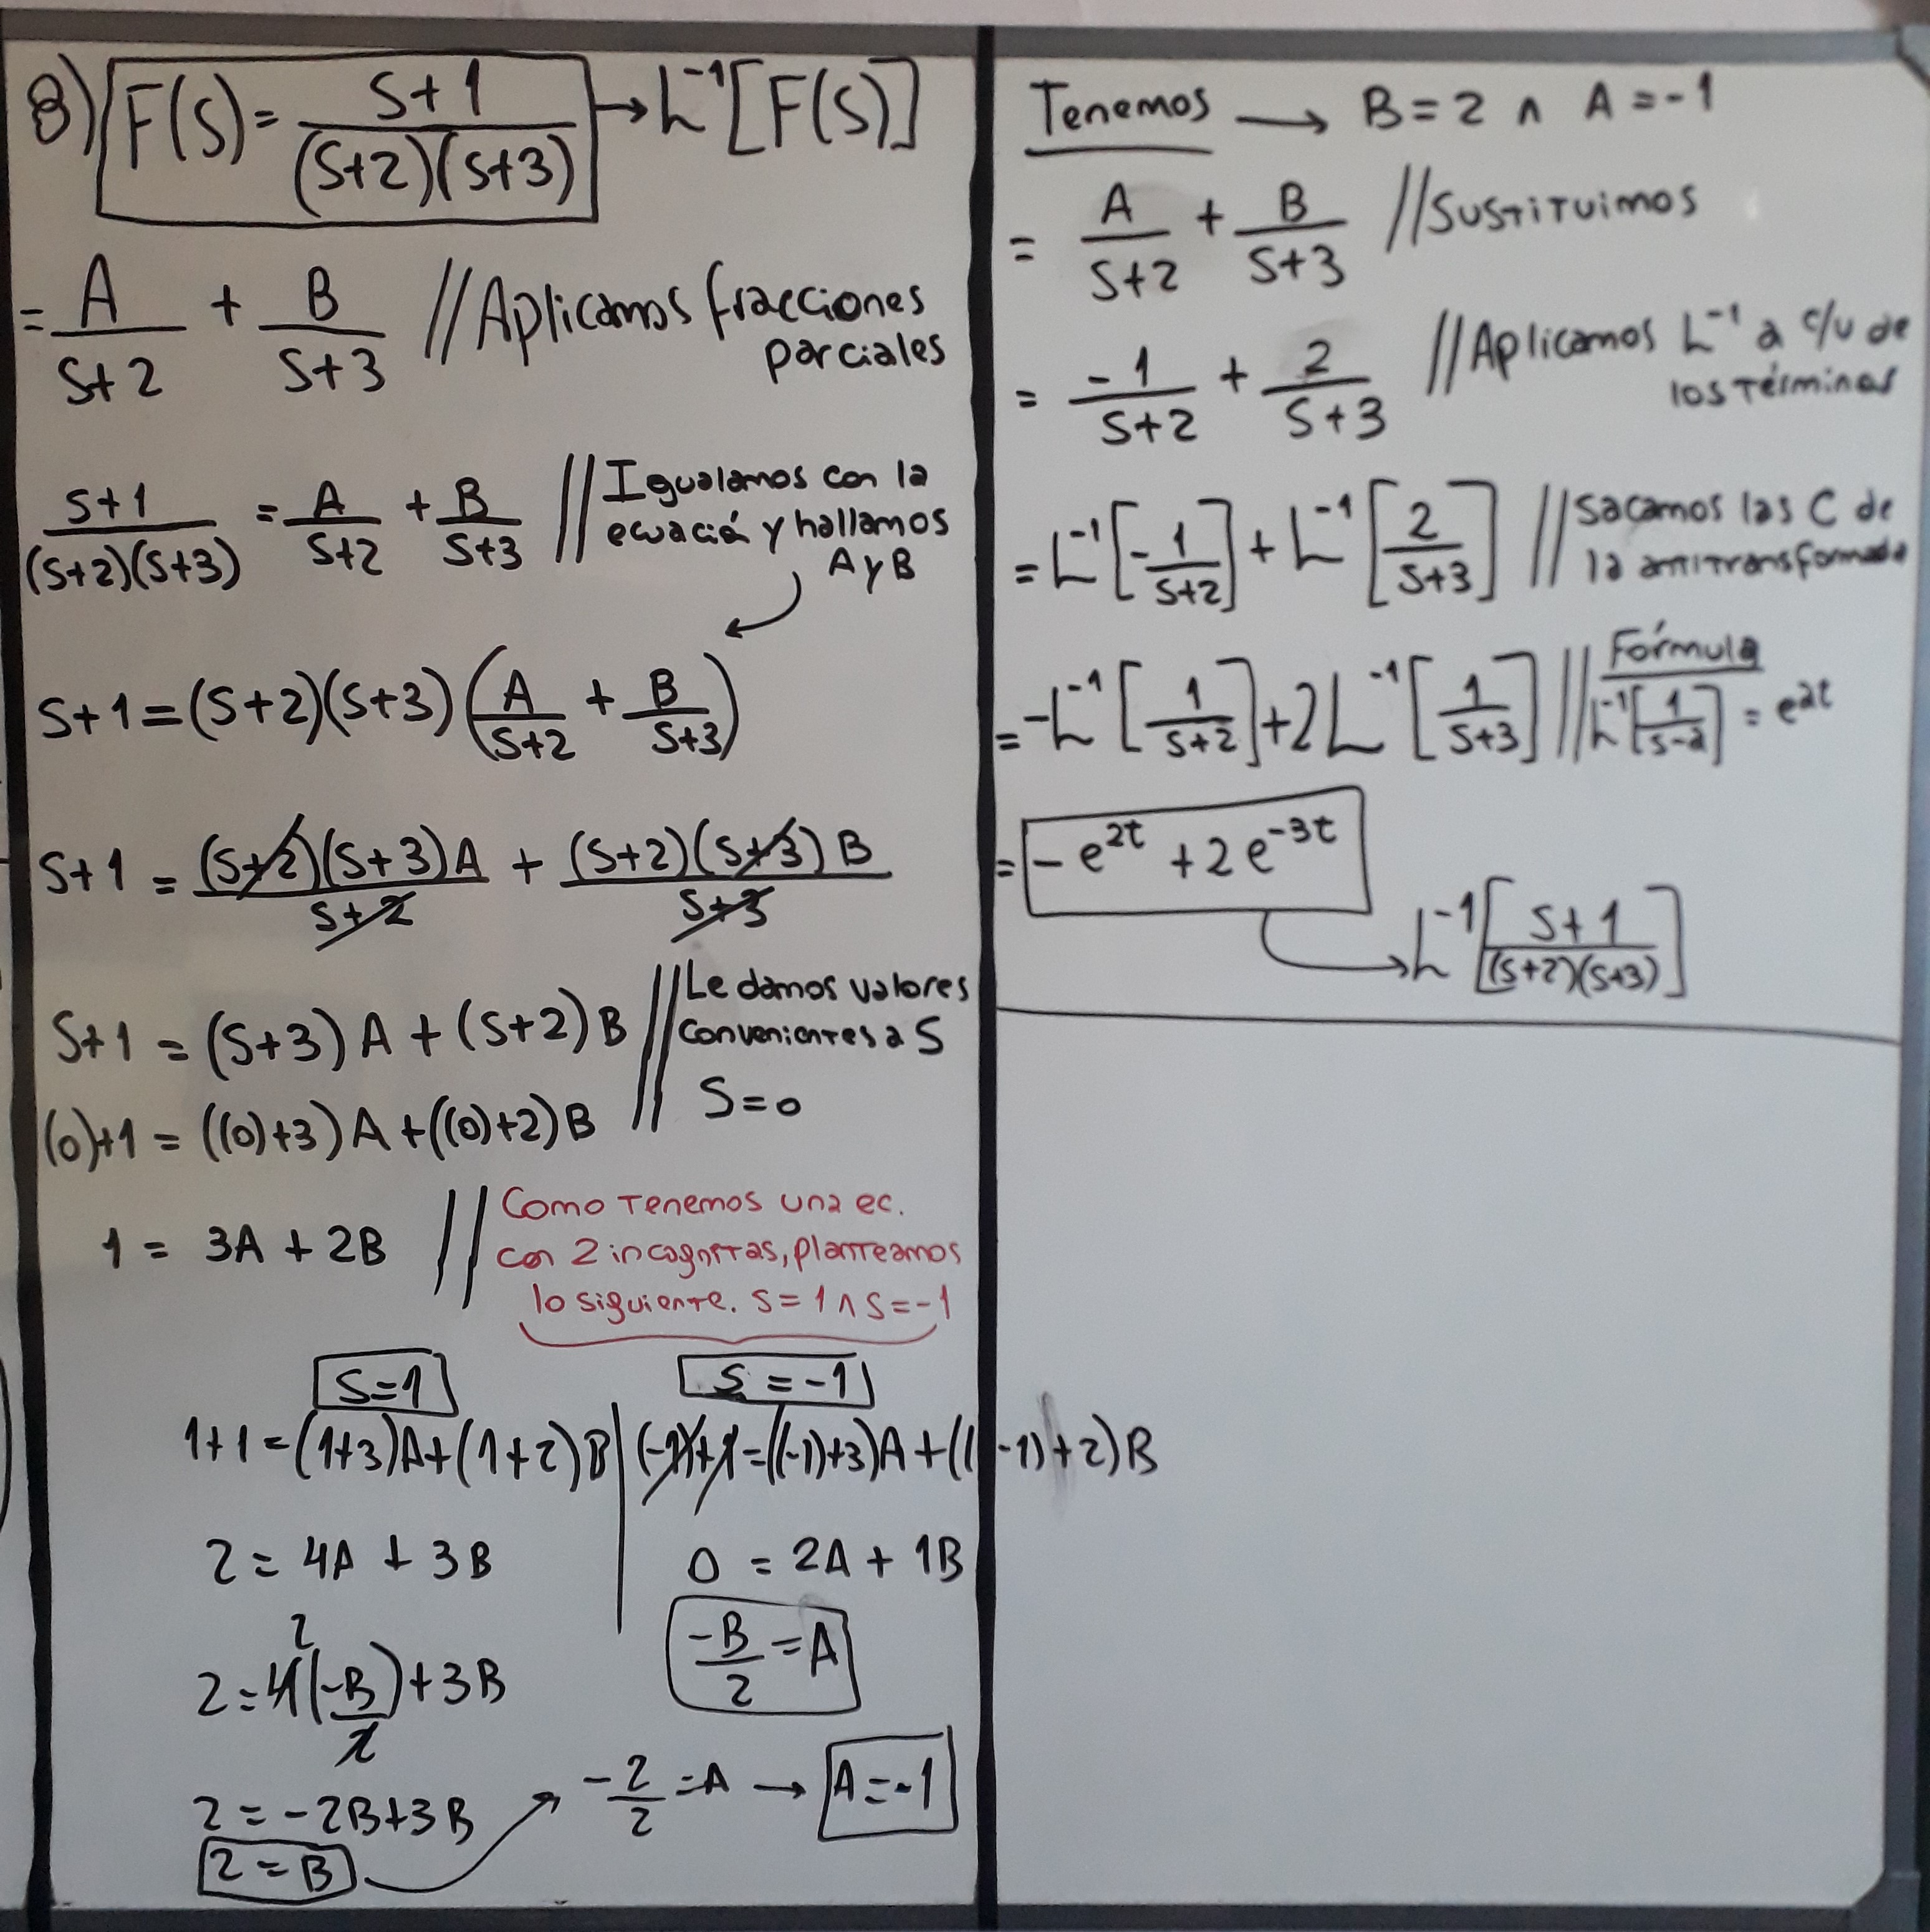 8) F(S) = S+1 / (S+2)(S+3) → L⁻¹[F(S)]
= A/S+2 + B/S+3 //Aplicamos fracciones
parciales
S+1/(S+2)(S+3) = A/S+2 + B/S+3 //Igualamos con la
ecuación y hallamos
A y B
S+1 = (S+2)(S+3)(A/S+2 + B/S+3)
S+1 = (S+2)(S+3)A/S+2 + (S+2)(S+3)B/S+3
S+1 = (S+3)A + (S+2)B //Le damos valores
convenientes a S
S=0
(0)+1 = ((0)+3)A + ((0)+2)B
1 = 3A + 2B //Como Tenemos una ec.
con 2 incognitas, planteamos
lo siguiente. S=1 ∧ S=-1
S=1
1+1 = (1+3)A + (1+2)B
2 = 4A + 3B
2 = 4(-B/2) + 3B
2
2 = -2B+3B
2 = B
S = -1
(-1)+1 = ((-1)+3)A + ((-1)+2)B
0 = 2A + 1B
-B/2 = A
-2/2 = A → A = -1
Tenemos → B = 2 ∧ A = -1
= A/S+2 + B/S+3 //Sustituimos
= -1/S+2 + 2/S+3 //Aplicamos L⁻¹ a c/u de
los términos
= L⁻¹[-1/S+2] + L⁻¹[2/S+3] //Sacamos las C de
la antitransformada
= -L⁻¹[1/S+2] + 2L⁻¹[1/S+3] //Fórmula
L⁻¹[1/S-a] = e^at
= -e^2t + 2e^-3t
L⁻¹[S+1/(S+2)(S+3)]